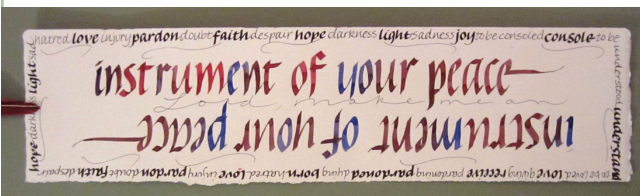 hatred love injury pardon doubt faith despair hope darkness light sadness joy to be consoled console to be
understood understand
instrument of your peace
Lord, make me an
instrument of your peace
to be loved love giving receive pardoning pardoned dying born hatred love injury pardon doubt faith despair
hope darkness light sad